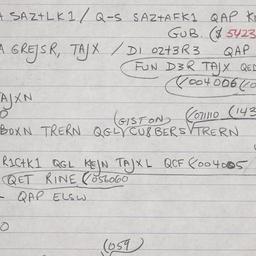 SAZ+LK1 / Q-S SAZ+AFK1 QAP
GUB. ($ 5423
GREJSR, TAJX / D1 OZ+3R3 QAP
(FUN D3R TAJX QED
(004006
AJXN
(GISTON) (071110) (143
BOXN TRERN QGL/ CUBBERS TRERN
R1C+K1 QGL KEJN TAJXL QCF (004005/
(QET RINE (056060
- QAP ELSW
O
(059)